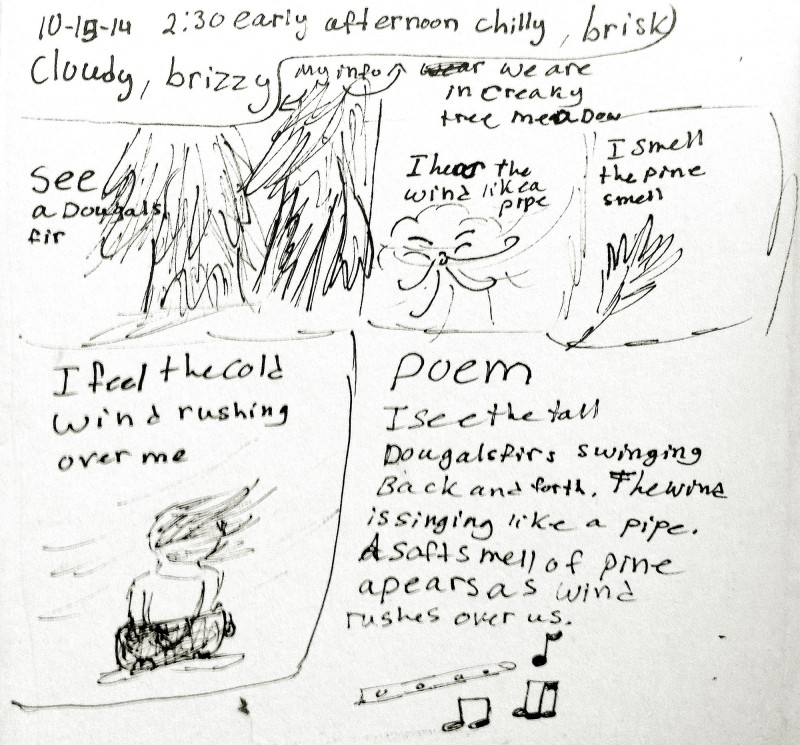 10-15-14 2:30 early afternoon chilly, brisk
Cloudy, brizzy
My info
we are
in Creaky
tree meaDow
See
a Dougals
fir
I hear the
wind like a
pipe
I smell
the pine
smell
I feel the cold
wind rushing
over me
Poem
I see the tall
Dougalsfirs swinging
Back and forth. The wind
is singing like a pipe.
A soft smell of pine
apears as wind
rushes over us.